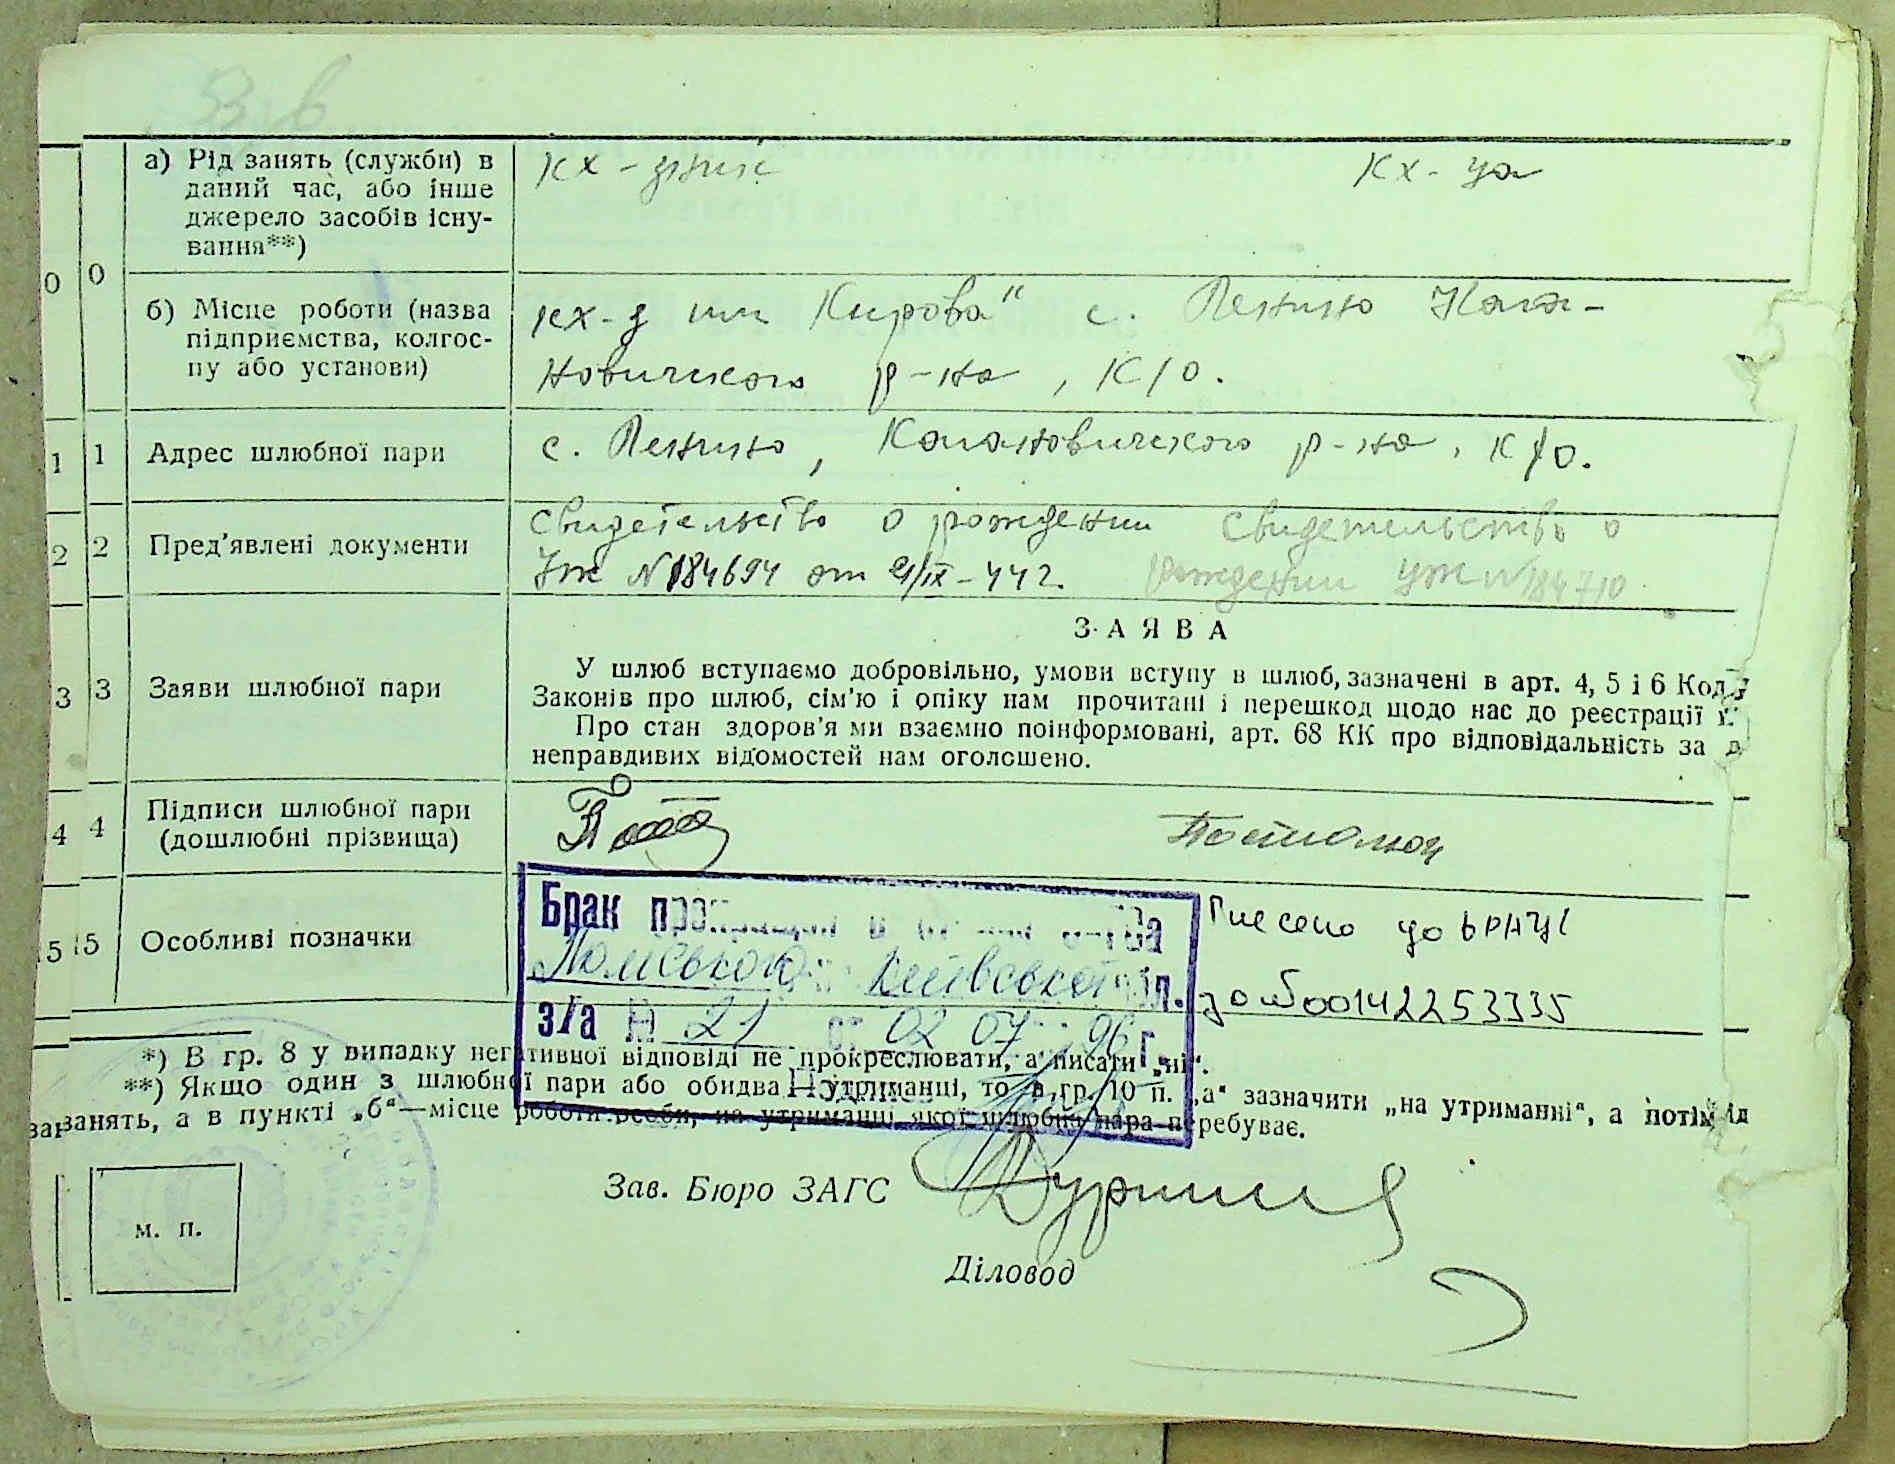 0 0 а) Рід занять (служби) в
даний час, або інше
джерело засобів існу-
вання**)
кх-зник кх-ца
б) Місце роботи (назва
підприємства, колгос-
пу або установи)
кх-з им Кирова" с. Ленино Кага-
новичского р-на, К/О.
1 1 Адрес шлюбної пари
с. Ленино, Кагановичского р-на, К/О.
2 2 Пред'явлені документи
Свидетельство о рождении
УЖ №184694 от 21/IX-44г.
Свидетельство о
рождении УЖ №184710
3 3 Заяви шлюбної пари
ЗАЯВА
У шлюб вступаємо добровільно, умови вступу в шлюб, зазначені в арт. 4, 5 і 6 Код
Законів про шлюб, сім'ю і опіку нам прочитані і перешкод щодо нас до реєстрації
Про стан здоров'я ми взаємно поінформовані, арт. 68 КК про відповідальність за
неправдивих відомостей нам оголошено.
4 4 Підписи шлюбної пари
(дошлюбні прізвища)
5 5 Особливі позначки
Брак
Київської
з/а № 21 от 02 07 96 г.
Внесено до ДРАЦС
за №00142253335
*) В гр. 8 у випадку негативної відповіді не прокреслювати, а писати „ні“.
**) Якщо один з шлюбної пари або обидва утриманці, то в гр. 10 п. „а“ зазначити „на утриманні“, а потім
занять, а в пункті „б“—місце роботи особи, на утриманні якої шлюбна пара перебуває.
м. п.
Зав. Бюро ЗАГС
Діловод